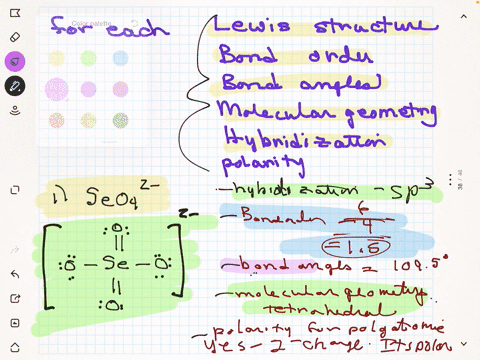 for each
Color palette
Lewis structure
Bond order
Bond angles
Molecular geometry
Hybridization
polarity
1) SeO4 2-
- hybidization - sp3
- Bondorder 6/4
= 1.5
- bond angles = 109.5°
- molecular geometry
tetrahedral
- polarity for polyatomic
yes - 2- charge. Its polar
2-
O
O - Se - O
O
38